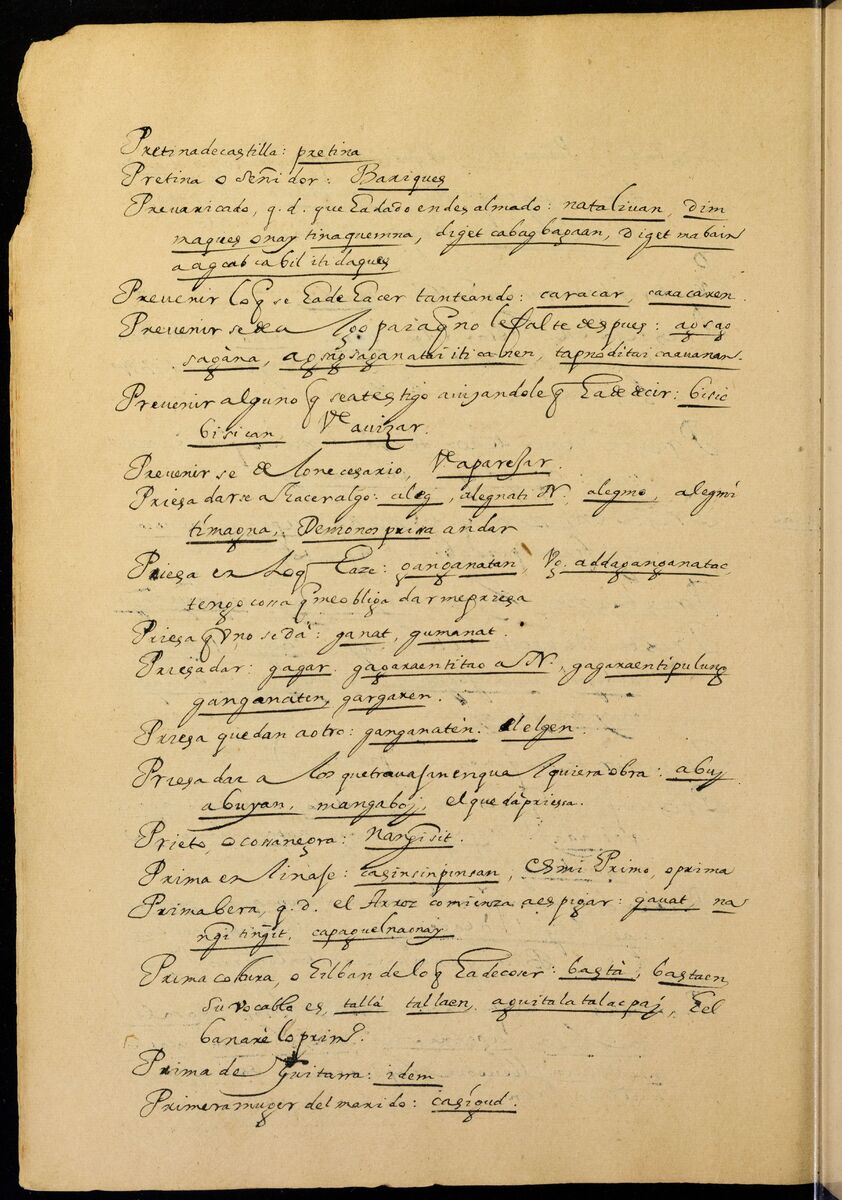 Pretina de castilla: pretina
Pretina o señidor: Bariques
Prevaricado, q. d. que ha dado en desalmado: natalivan, dim
maques onay tinaquemna, diget cabagbagaan, diget mabain
a agcab cabil iti daques
Prevenir lo q̃ se ha de hacer tanteando: caracar, caracaren.
Prevenirse de algo para q̃ no le falte despues: agsag
sagàna, agsagsaganatai iti canen, tapno ditai caavanan.
Prevenir alguno q̃ sea testigo avisandole q̃ ha de decir: bisic
bisican, Ve avizar.
Prevenirse de lo necesario, Ve aparesar.
Priesa darse a hacer algo: aleg, alegnati N., alegmo, alegmi
tímagna, Demonos prisa andar
Priesa en lo q̃ haze: ganganatan, Vg. addaganganatac,
tengo cossa q̃ me obliga darme priesa
Priesa q̃ vno se dà: ganat, gumanat.
Priesa dar: gagar. gagaraentitao a N., gagaraentipulung
ganganàten, gargaren.
Priesa que dan a otro: ganganatèn. elelgen.
Priesa dar a los que travajan en qualquiera obra: abuy
abuyan, mangaboy, el que dà priessa.
Prieto, o cossa negra: nangisit.
Prima en linaje: casinsinpinsan, es mi Primo, o prima
Primabera, q. d. el Arroz comienza a espigar: gavat, na
ngitingit, capaguelnaonay
Prima costura, o hilban de lo q̃ ha de coser: bastà, bastaen,
su vocablo es, tallà tallaen, aguitalatalacpay, hel
banarè lo primo.
Prima de Guitarra: idem
Primera muger del marido: casigud.